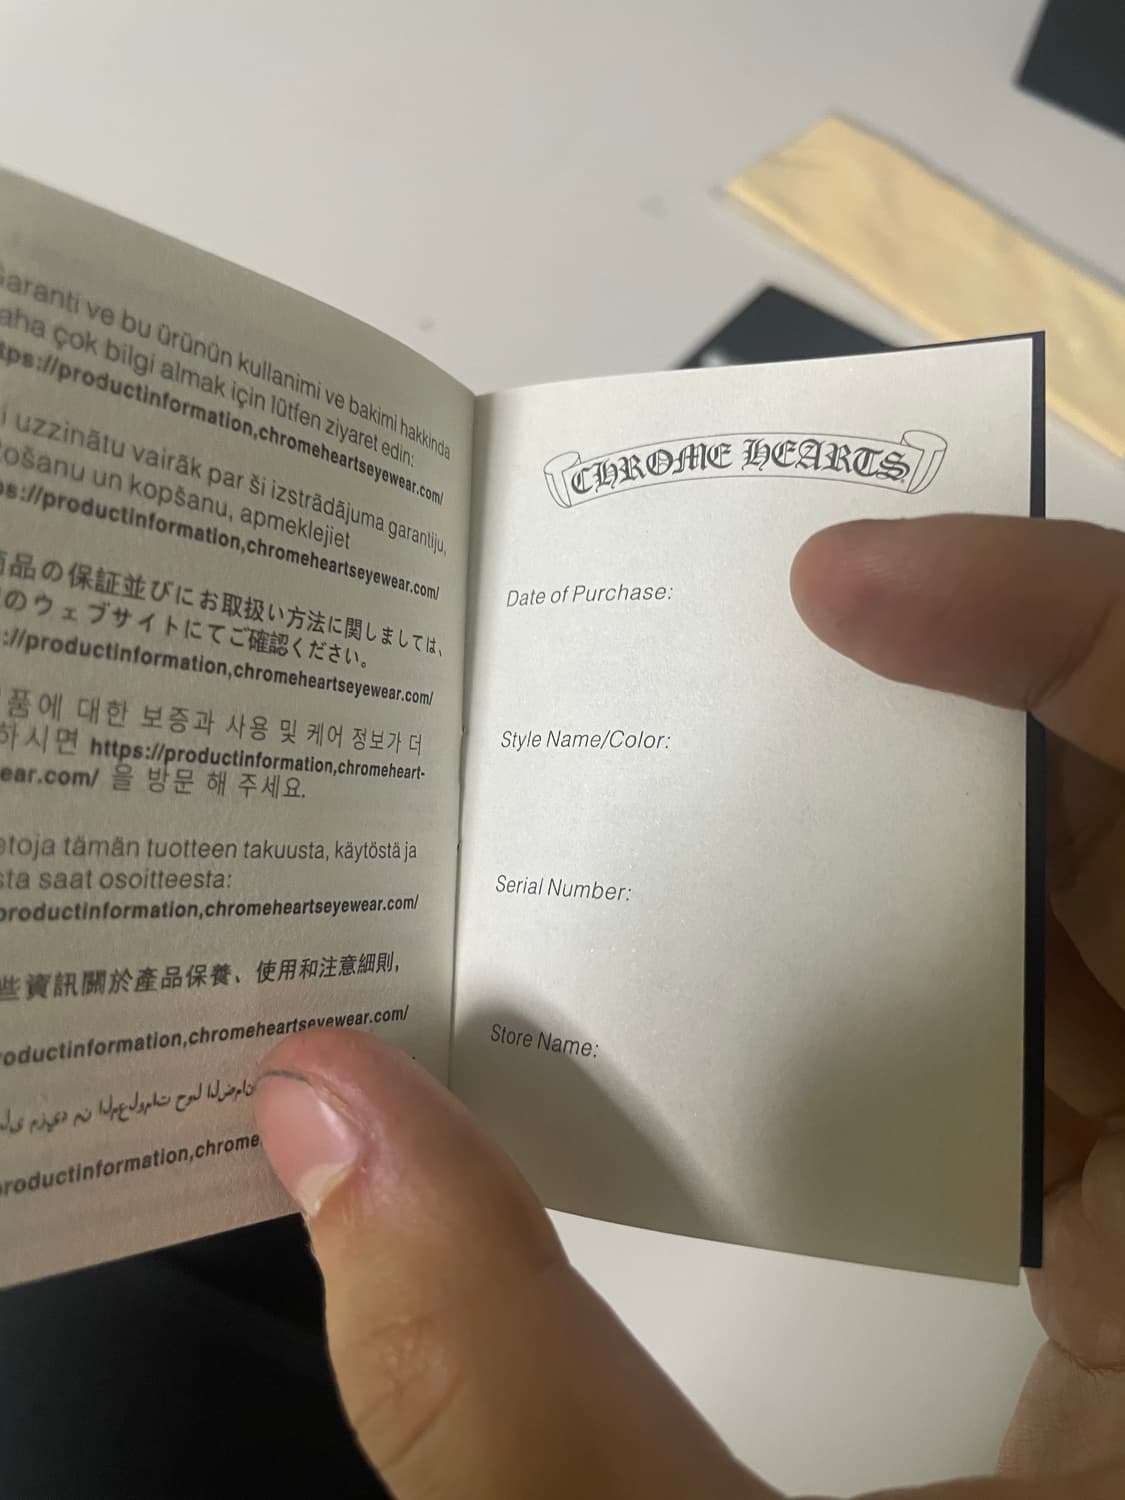 Garanti ve bu ürünün kullanimi ve bakimi hakkinda
daha çok bilgi almak için lütfen ziyaret edin:
https://productinformation,chromeheartseyewear.com/
uzzinātu vairāk par ši izstrādājuma garantiju,
un kopšanu, apmeklejiet
https://productinformation,chromeheartseyewear.com/
商品の保証並びにお取扱い方法に関しましては、
のウェブサイトにてご確認ください。
://productinformation,chromeheartseyewear.com/
품에 대한 보증과 사용 및 케어 정보가 더
하시면 https://productinformation,chromeheart-
ear.com/ 을 방문 해 주세요.
etoja tämän tuotteen takuusta, käytöstä ja
sta saat osoitteesta:
productinformation,chromeheartseyewear.com/
些資訊關於產品保養、使用和注意細則,
oductinformation,chromeheartseyewear.com/
مزيد من المعلومات حول الضمان
productinformation,chrome
CHROME HEARTS
Date of Purchase:
Style Name/Color:
Serial Number:
Store Name: